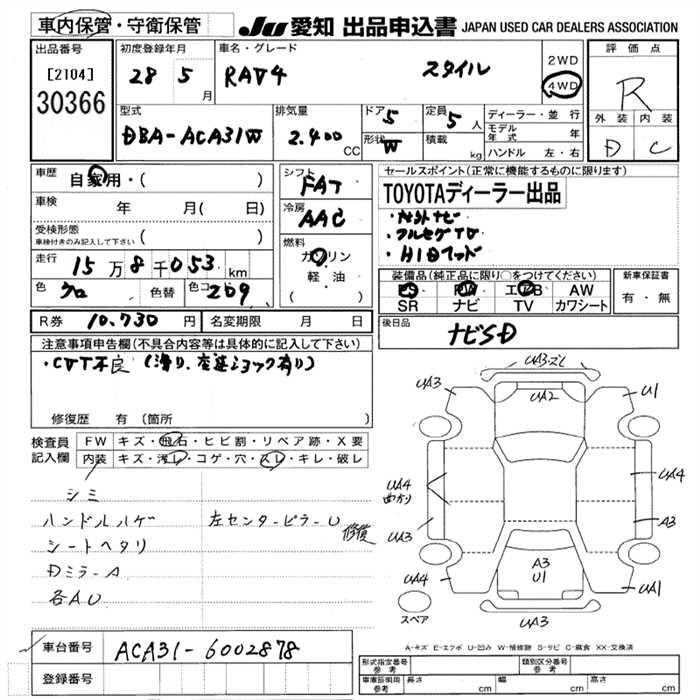 車内保管・守衛保管
JU 愛知 出品申込書 JAPAN USED CAR DEALERS ASSOCIATION
出品番号
[2104]
30366
初度登録年月
28 5
月
車名・グレード
RAV4 スタイル
2WD
4WD
評価点
R
外装 内装
D C
型式
DBA-ACA31W
排気量
2.400
CC
ドア 5
形状 W
定員 5 人
積載 kg
ディーラー・並行
モデル年式 年
ハンドル 左・右
車歴
自家用・( )
車検 年 月( 日)
受検形態
車検付きのみ記入して下さい ( )
走行
15万8千053 km
色 クロ 色替 色コード 209
シフト
FAT
冷房
AAC
燃料
ガソリン
軽・油
( )
セールスポイント(正常に機能するものに限ります)
TOYOTAディーラー出品
・社外ナビ
・フルセグTV
・HIDヘッド
装備品(純正品に限り○をつけてください)
PS PW エアB AW
SR ナビ TV カワシート
新車保証書
有・無
R券 10.730 円
名変期限 月 日
後日品
ナビSD
注意事項申告欄(不具合内容等は具体的に記入して下さい)
・CVT不良(滑り、変速ショック有り)
修復歴 有(箇所
検査員記入欄
FW キズ・飛石・ヒビ割・リペア跡・X要
内装 キズ・汚レ・コゲ・穴・スレ・キレ・破レ
シミ
ハンドルハゲ
シートヘタリ
Dミラ-A
各AU
左センターピラーU 修復
UA3·ズレ
UA3
U1
UA2
UA4
UA4
曲がり
UA3
A3
A3
U1
UA4
UA1
UA3
スペア
A-キズ E-エクボ U-凹み W-補修跡 S-サビ C-腐食 XX-交換済
車台番号 ACA31-6002878
登録番号
形式指定番号 参考
類別区分番号 参考
車庫証明用 参考 長さ cm 幅 cm 高さ cm